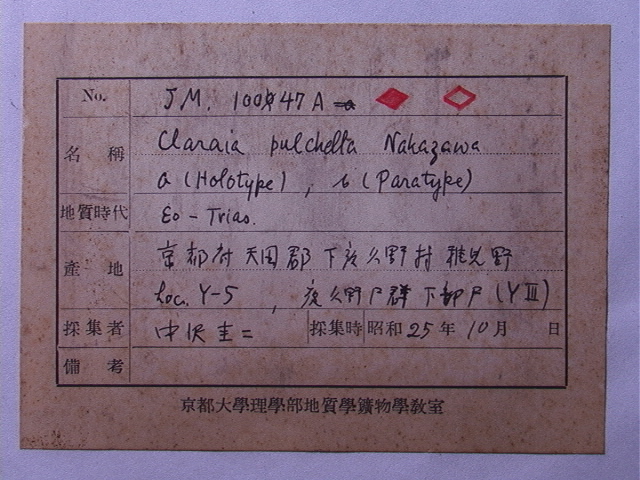 No. JM. 10047A
名稱 Claraia pulchella Nakazawa
a (Holotype), b (Paratype)
地質時代 Eo-Trias.
產地 京都府天田郡下夜久野村
Loc. Y-5, 夜久野尸群下部尸(YIII)
採集者 中沢圭二 採集時 昭和25年10月 日
備考
京都大學理學部地質學鑛物學教室